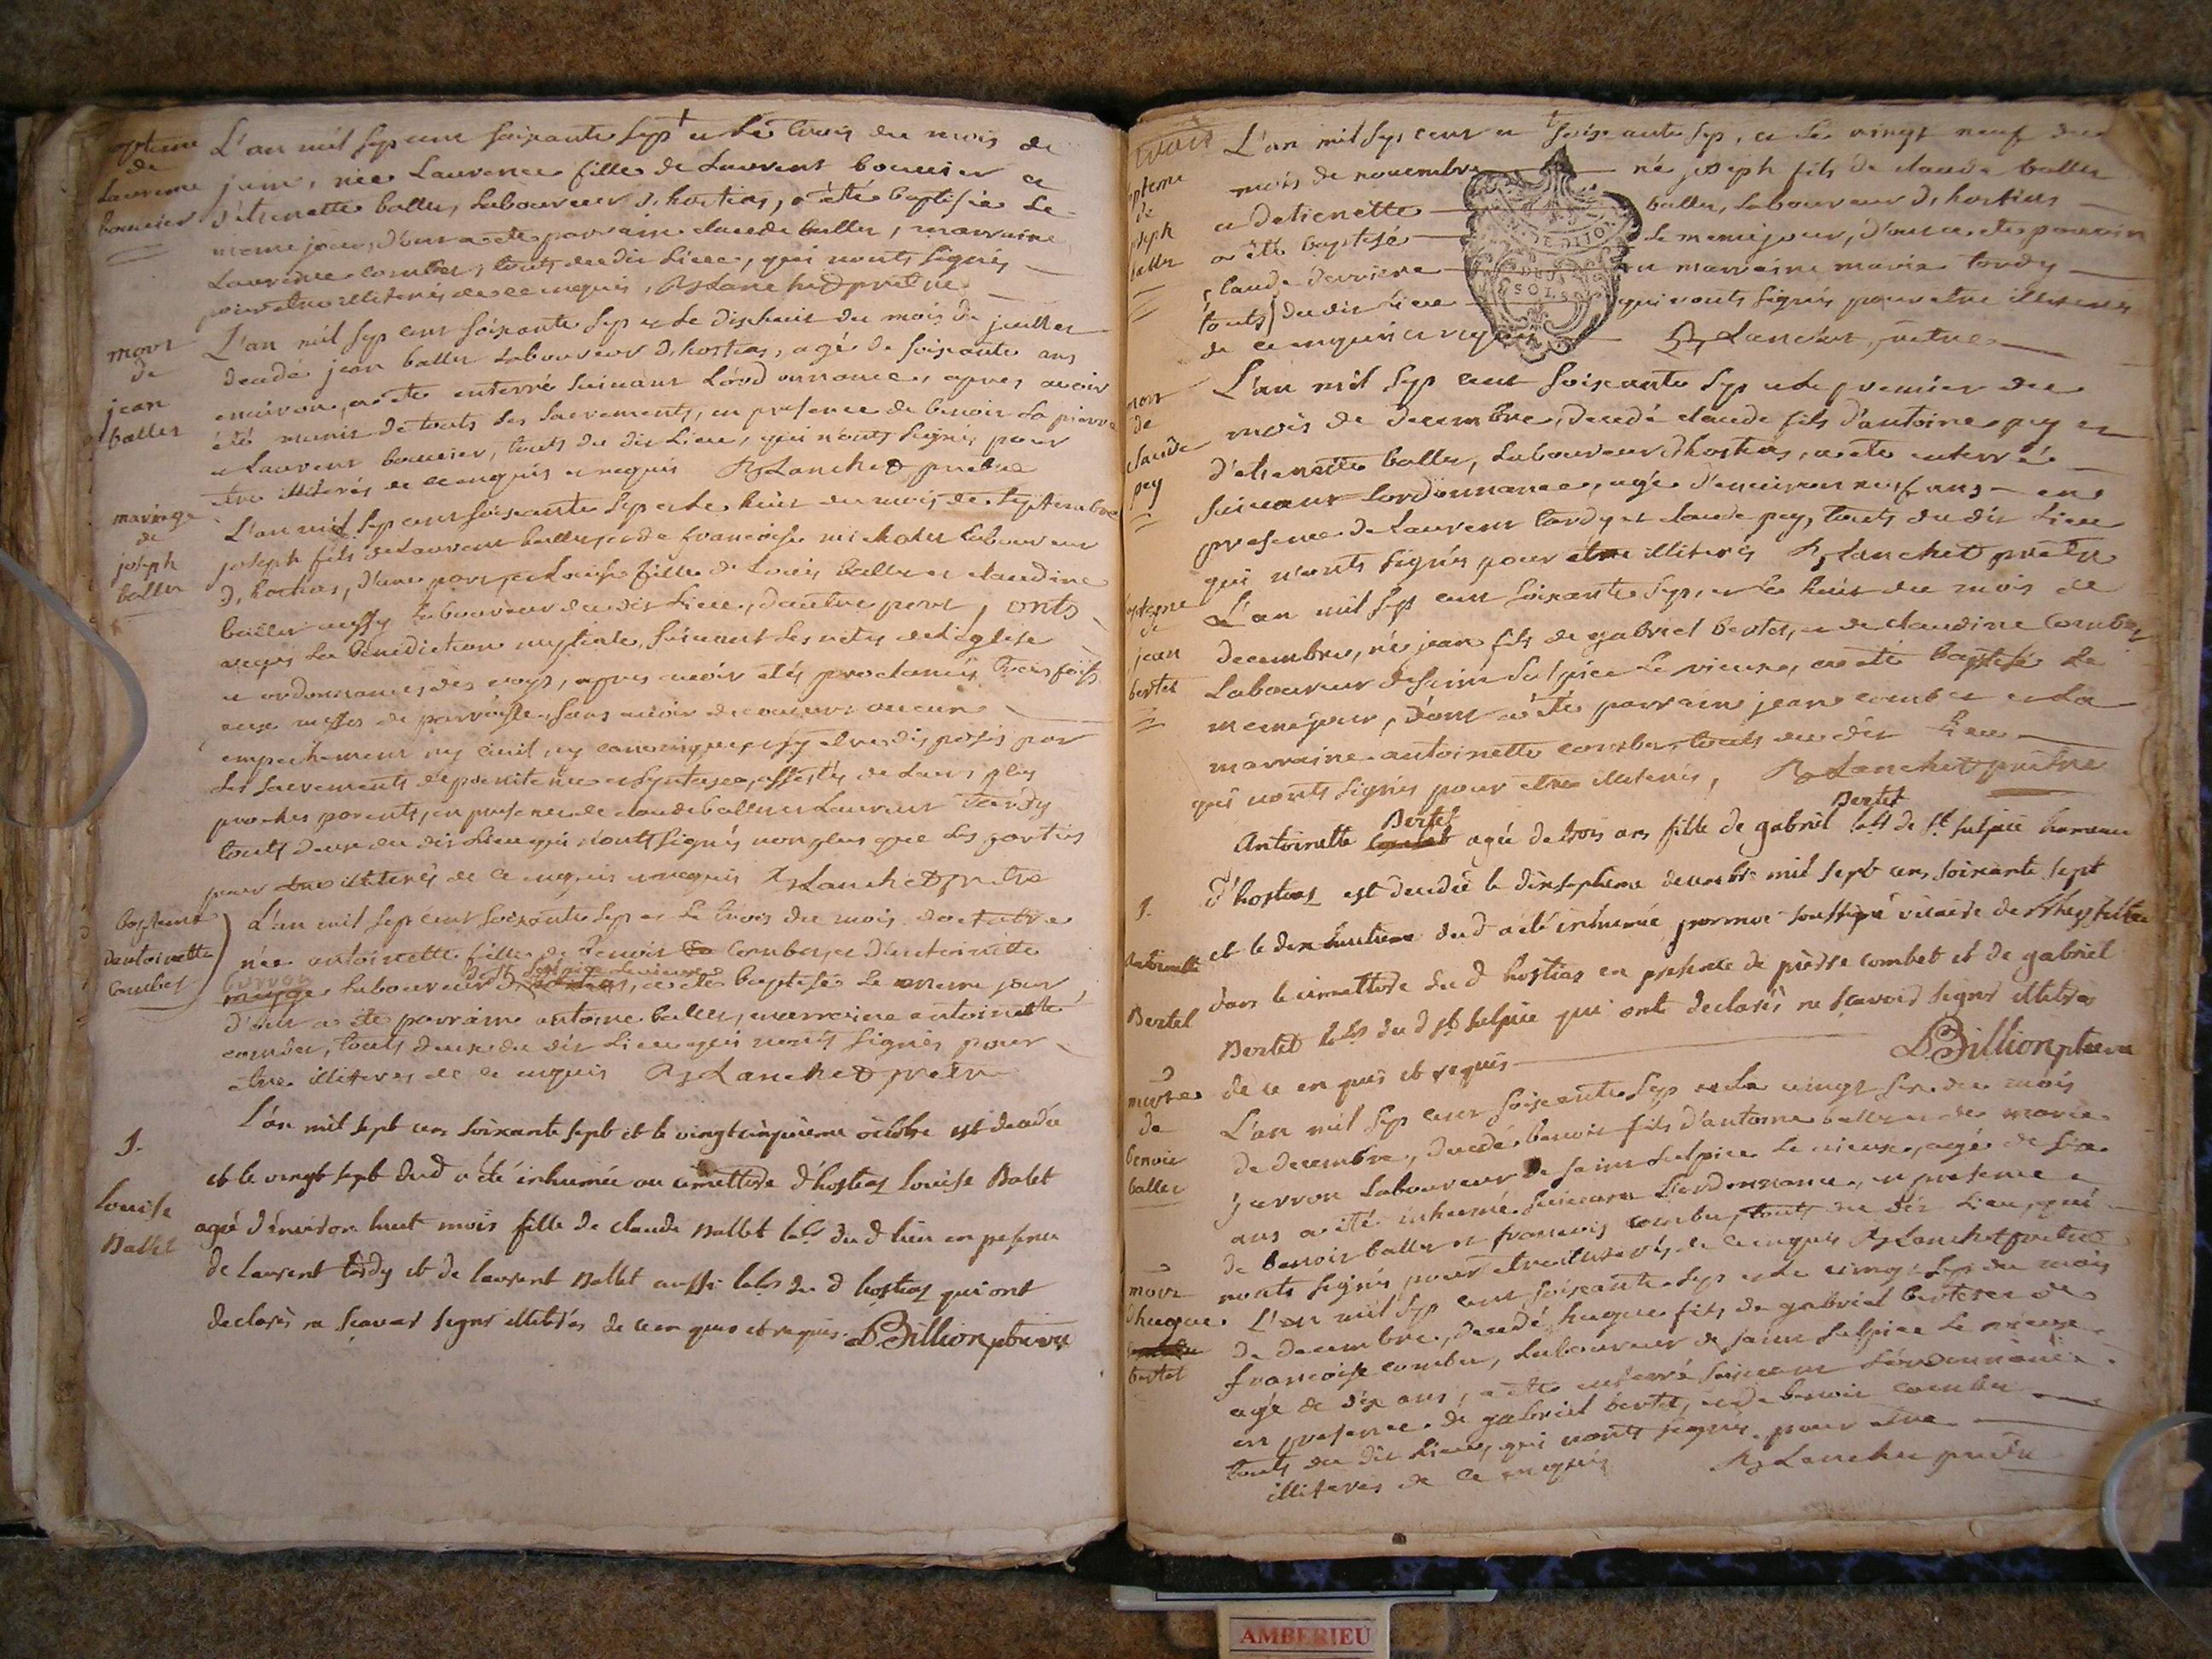 de
Laurence
bouvier
L'an mil sept cent soixante sept et le trois du mois de
juin, née Laurence fille de Laurent bouvier et
d'etienette ballet, laboureur d'hostias, a été baptisée le
meme jour, dont a ete parrain claude ballet, marraine
Laurence combet, touts du dit lieu, qui nonts signés
pour etre illiterés de ce enquis, Lanchet pretre
mort
de
jean
ballet
L'an mil sept cent soixante sept et le dixhuit du mois de juillet
decedé jean ballet laboureur d'hostias, agé de soixante ans
environ, a ete enterré suivant l'ordonnance, apres avoir
été munit de touts ses sacrements, en presence de benoit
et Laurent bouvier, touts du dit lieu, qui n'onts signés pour
etre illiterés de ce enquis et requis Lanchet pretre
mariage
de
joseph
ballet
L'an mil sept cent soixante sept et le huit du mois de septembre
joseph fils de Laurent ballet, et de francoise laboureur
d'hostias, d'une part, et Louise fille de Louis ballet et claudine
ballet aussy laboureur du dit lieu, d'autre part, onts
reçus la benediction nuptiale, suivant les de l'eglise
et ordonnances des roys, apres avoir etés proclamés trois fois
aux messes de parroisse, sans avoir decouvert aucun
empechement ny civil ny canonique, s'y etres disposés par
les sacrements de penitence et, assistés de leurs plus
proches parents, en presence de claude ballet et Laurent Tardy
touts deux du dit lieu qui nonts signés non plus que les parties
pour etre illiterés de ce enquis et requis Lanchet pretre
bapteme
d'antoinette
Combet
L'an mil sept cent soixante sept et le trois du mois doctobre
née antoinette fille de benoit Combet, et d'antoinette
de st Sulpice le vieux
laboureur, a ete baptisée le meme jour,
d'ont a ete parrain antoine ballet, marraine antoinette
combet, touts deux du dit lieu qui nonts signés pour
etre illiteres de ce enquis Lanchet pretre
Louise
Ballet
L'an mil sept cens soixante sept et le vingt cinquieme octobre est decedée
et le vingt sept dud a été inhumée au cimettiere d'hostiaz Louise Balet
agée d'environ huit mois fille de claude Ballet labr du d lieu en presence
de laurent tardy et de laurent Ballet aussi labrs du d hostiaz qui ont
declarés ne sçavoir signer illitérés de ce en quis et requis. Billion ptre vic
bapteme
de
joseph
ballet
L'an mil sept cent et soixante sept, et le vingt neuf du
mois de novembre né joseph fils de claude ballet
et detienette ballet, laboureur d'hostias
a été baptisé le meme jour, d'ont a ete parrain
claude et marraine marie tardy
touts du dit lieu qui nonts signés pour etre illiterés
de ce enquis et requis Lanchet, pretre
mort
de
claude
pey
L'an mil sept cent soixante sept et le premier du
mois de decembre, decedé claude fils d'antoine pey et
d'etienette ballet, laboureur d'hostias, a ete enterré
suivant lordonnance, agé d'environ neuf ans en
presence de Laurent tardy et claude pey, touts du dit lieu
qui n'onts signés pour etre illiterés Lanchet pretre
bapteme
de
jean
bertet
L'an mil sept cent soixante sept, et le huit du mois de
decembre, né jean fils de gabriel bertet, et de claudine Combet
Laboureur de saint Sulpice le vieux, a ete baptisé le
meme jour, dont a été parrain jean combet et la
marraine antoinette combet, touts du dit lieu
qui nonts signés pour etre illiterés, Lanchet pretre
Antoinette
Bertet
Bertet Bertet
Antoinette agée de trois ans fille de gabriel labr de st sulpice hameau
d'hostiaz est decedée le dixseptieme decembre mil sept cens soixante sept
et le dix huitieme dud a été inhumée par moi soussigné vicaire de
dans le cimettiere du d hostiaz en presence de pierre combet et de gabriel
Bertet labrs du d st sulpice qui ont declarés ne sçavoir signer illitérés
de ce en quis et requis Billion ptre vic
de
benoit
ballet
L'an mil sept cent soixante sept et le vingt six du mois
de decembre, decedé benoit fils d'antoine ballet et de marie
laboureur de saint sulpice le vieux, agé de six
ans a été inhumé suivant l'ordonnance, en presence
de benoit ballet et francois combet, touts du dit lieu, qui
nonts signés pour etre illiterés, de ce enquis Lanchet pretre
mort
d'hugue
bertet
L'an mil sept cent soixante sept et le vingt sept du mois
de decembre, decedé hugue fils de gabriel bertet et de
francoise combet, laboureur de saint sulpice le vieux
agé de dix ans, a ete enterré suivant l'ordonnance
en presence de gabriel bertet, et de benoit combet
touts du dit lieu, qui nonts signés pour etre
illiterés de ce enquis Lanchet pretre
AMBERIEU